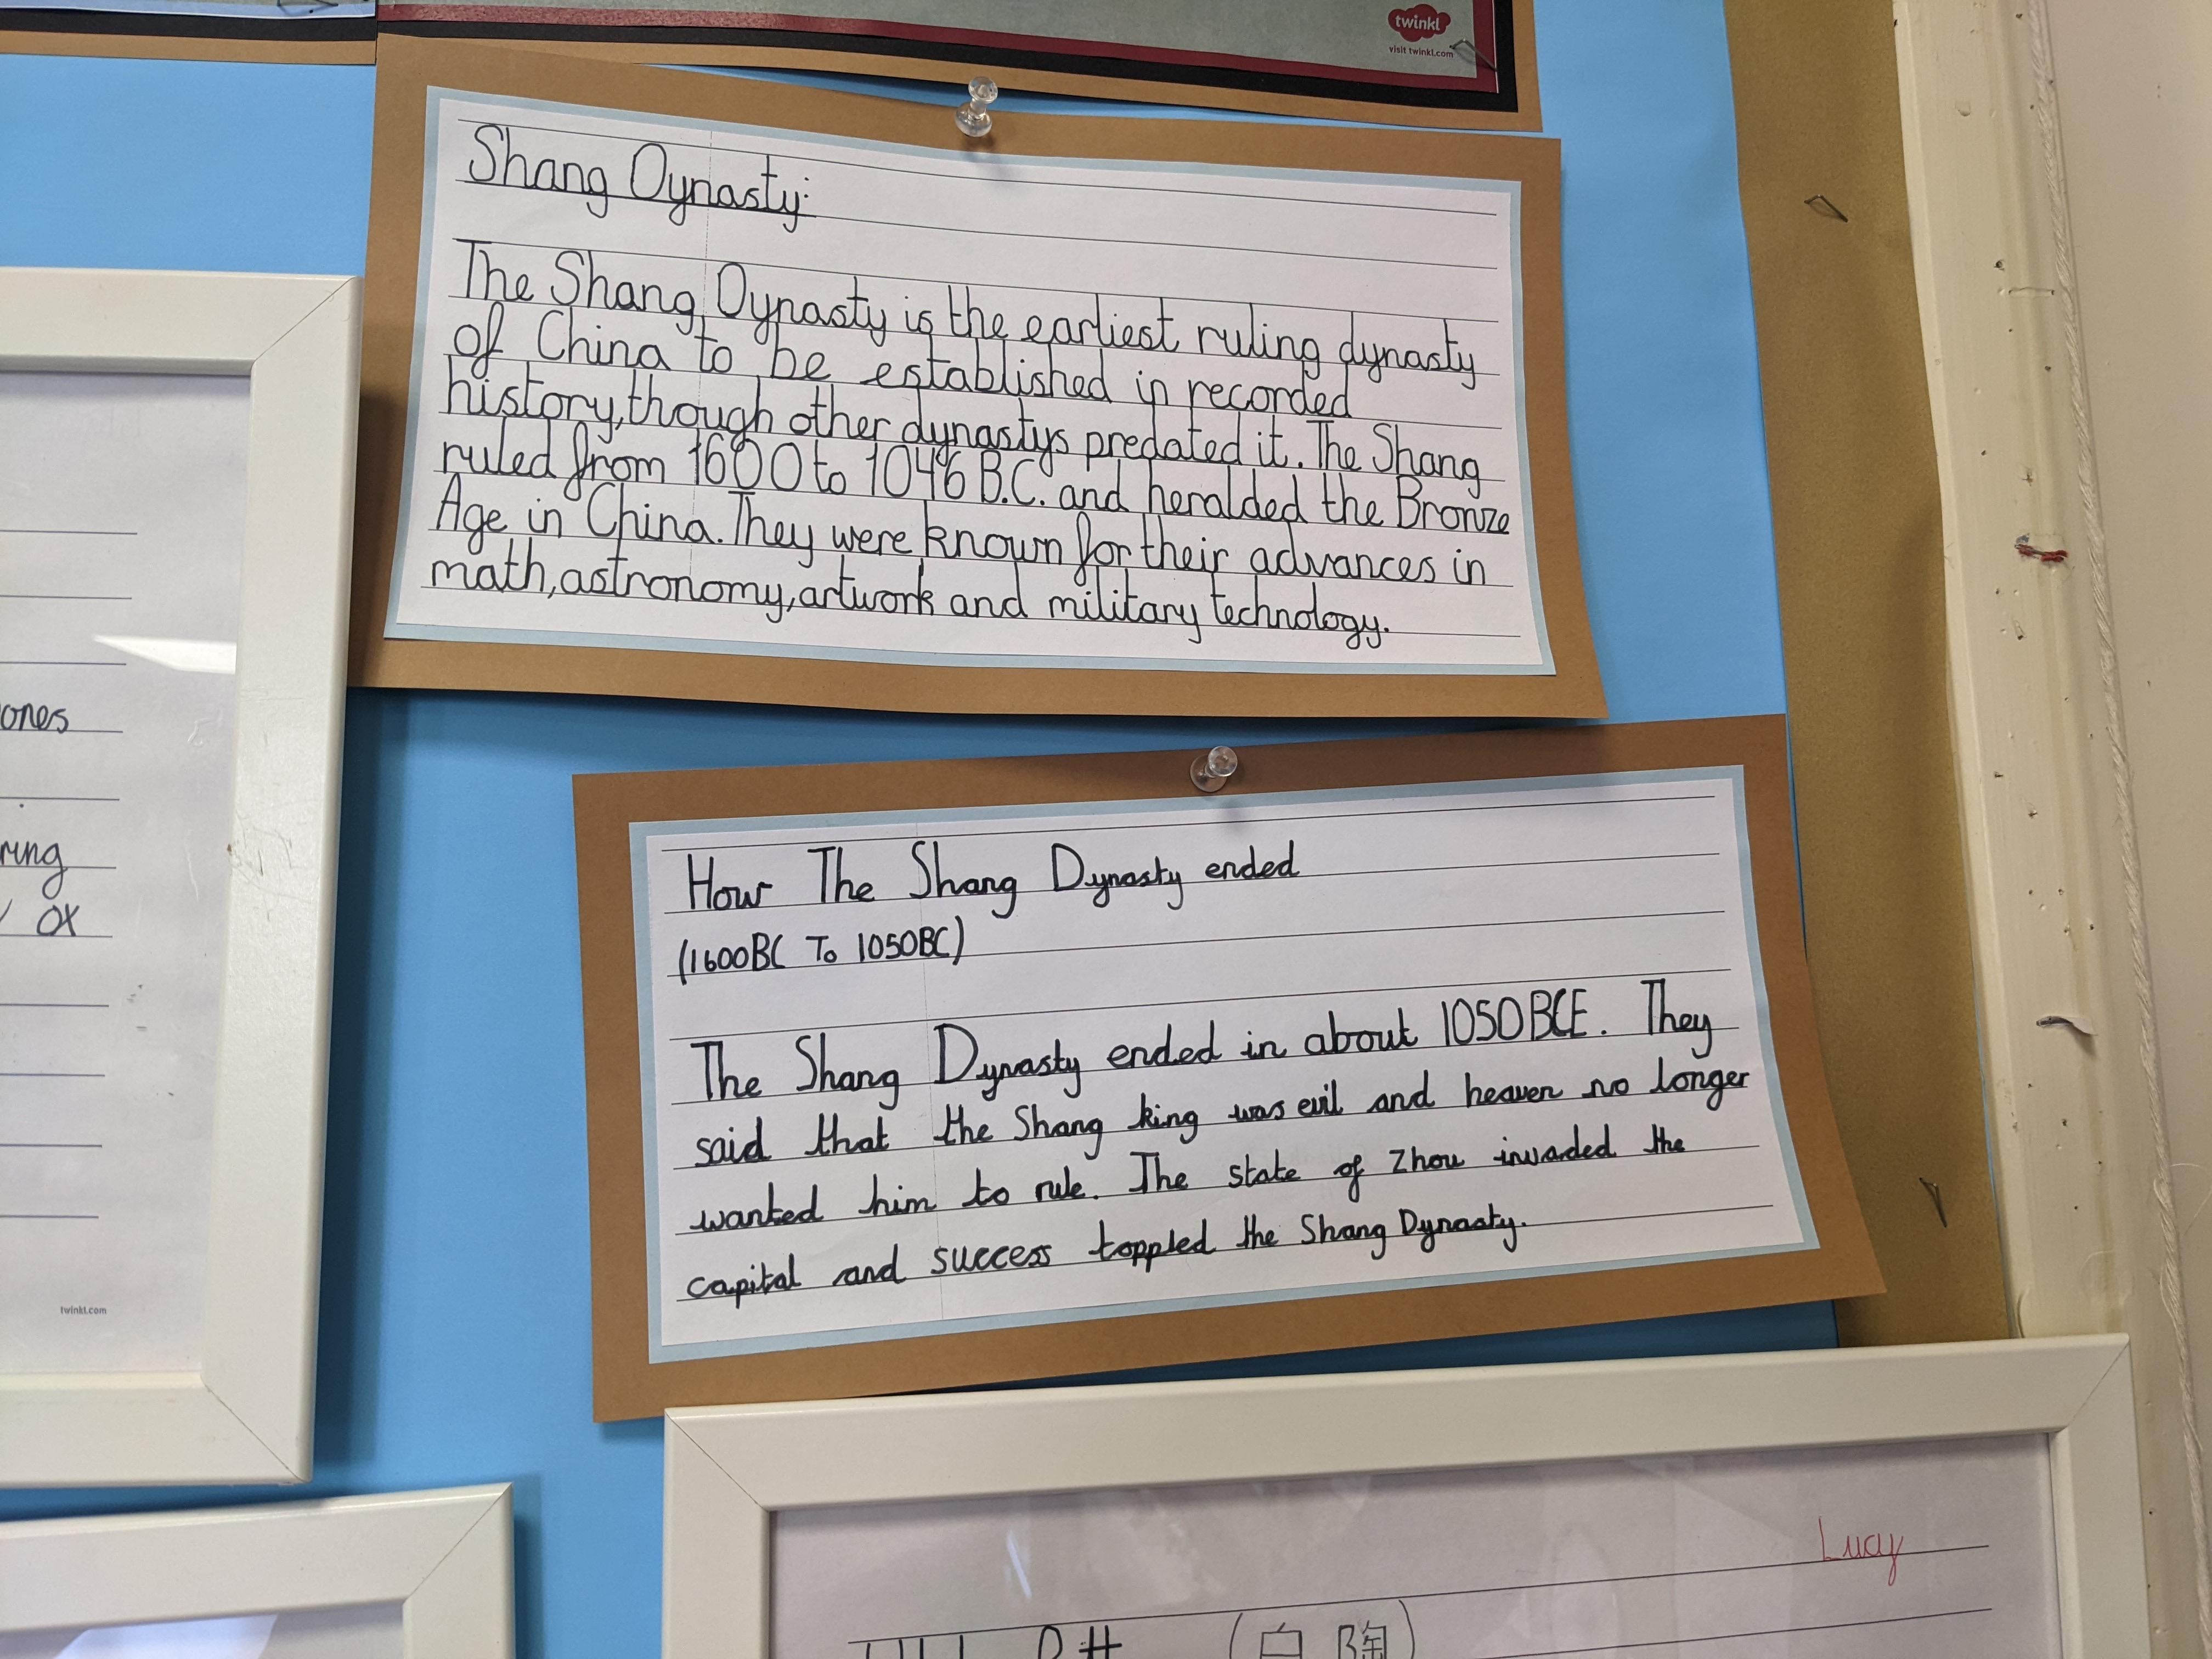 twinkl
visit twinkl.com
Shang Dynasty:
The Shang Dynasty is the earliest ruling dynasty
of China to be established in recorded
history, though other dynastys predated it. The Shang
ruled from 1600 to 1046 B.C. and heralded the Bronze
Age in China. They were known for their advances in
math, astronomy, artwork and military technology.
ones
ring
ox
twinkl.com
How The Shang Dynasty ended
(1600BC To 1050BC)
The Shang Dynasty ended in about 1050BCE. They
said that the Shang king was evil and heaven no longer
wanted him to rule. The state of Zhou invaded the
capital and success toppled the Shang Dynasty.
Lucy
(白陶)